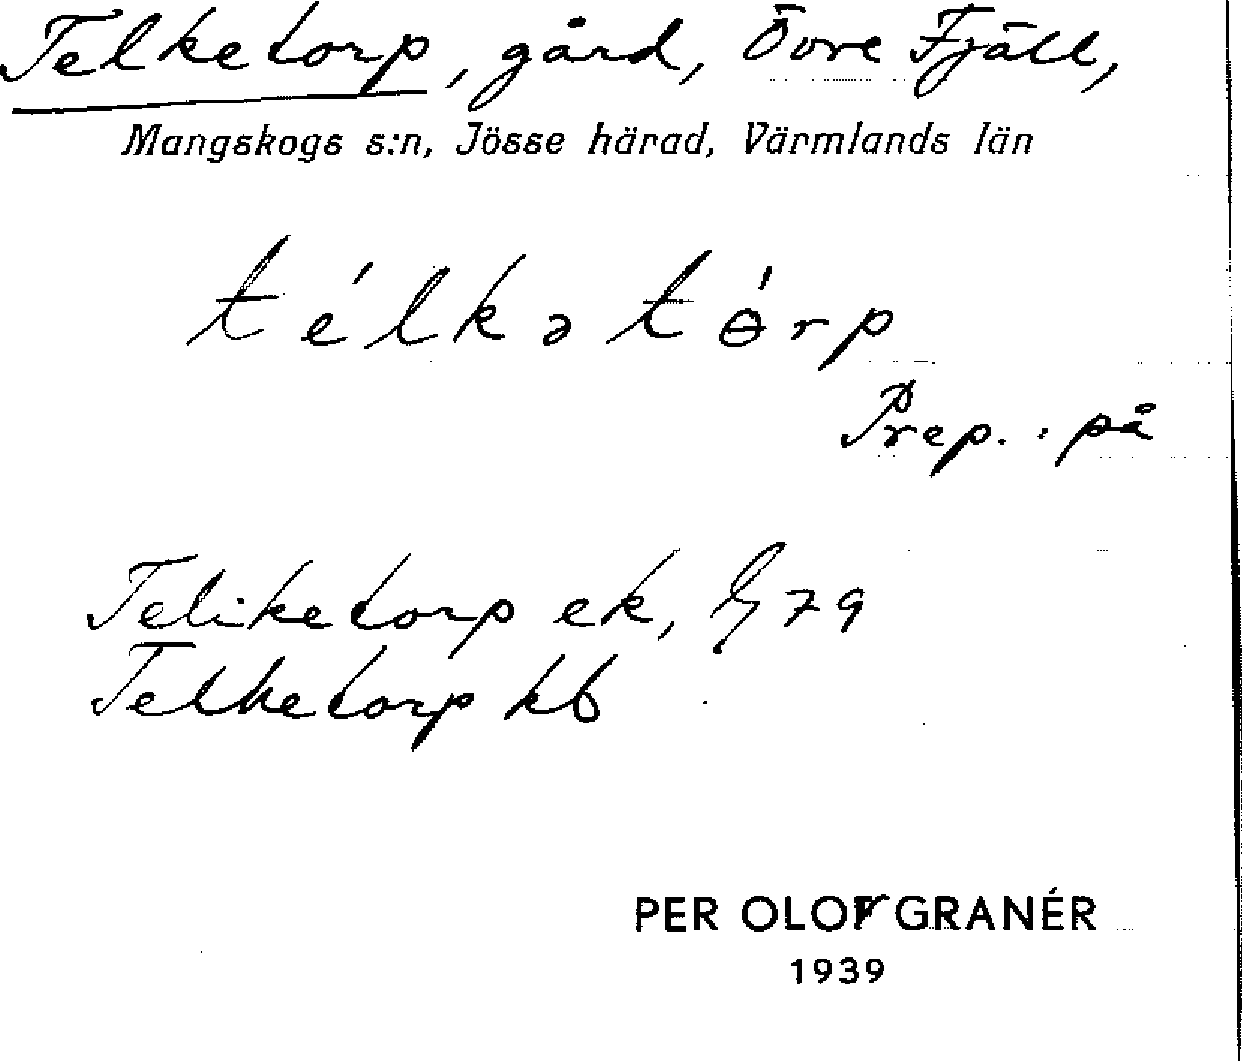 Telketorp, gård, Övre Fjäll,
Mangskogs s:n, Jösse härad, Värmlands län
télkə tɵ́rp
Prep. : på
Teliketorp ek, G 79
Telketorp kb
PER OLOF GRANÉR
1939